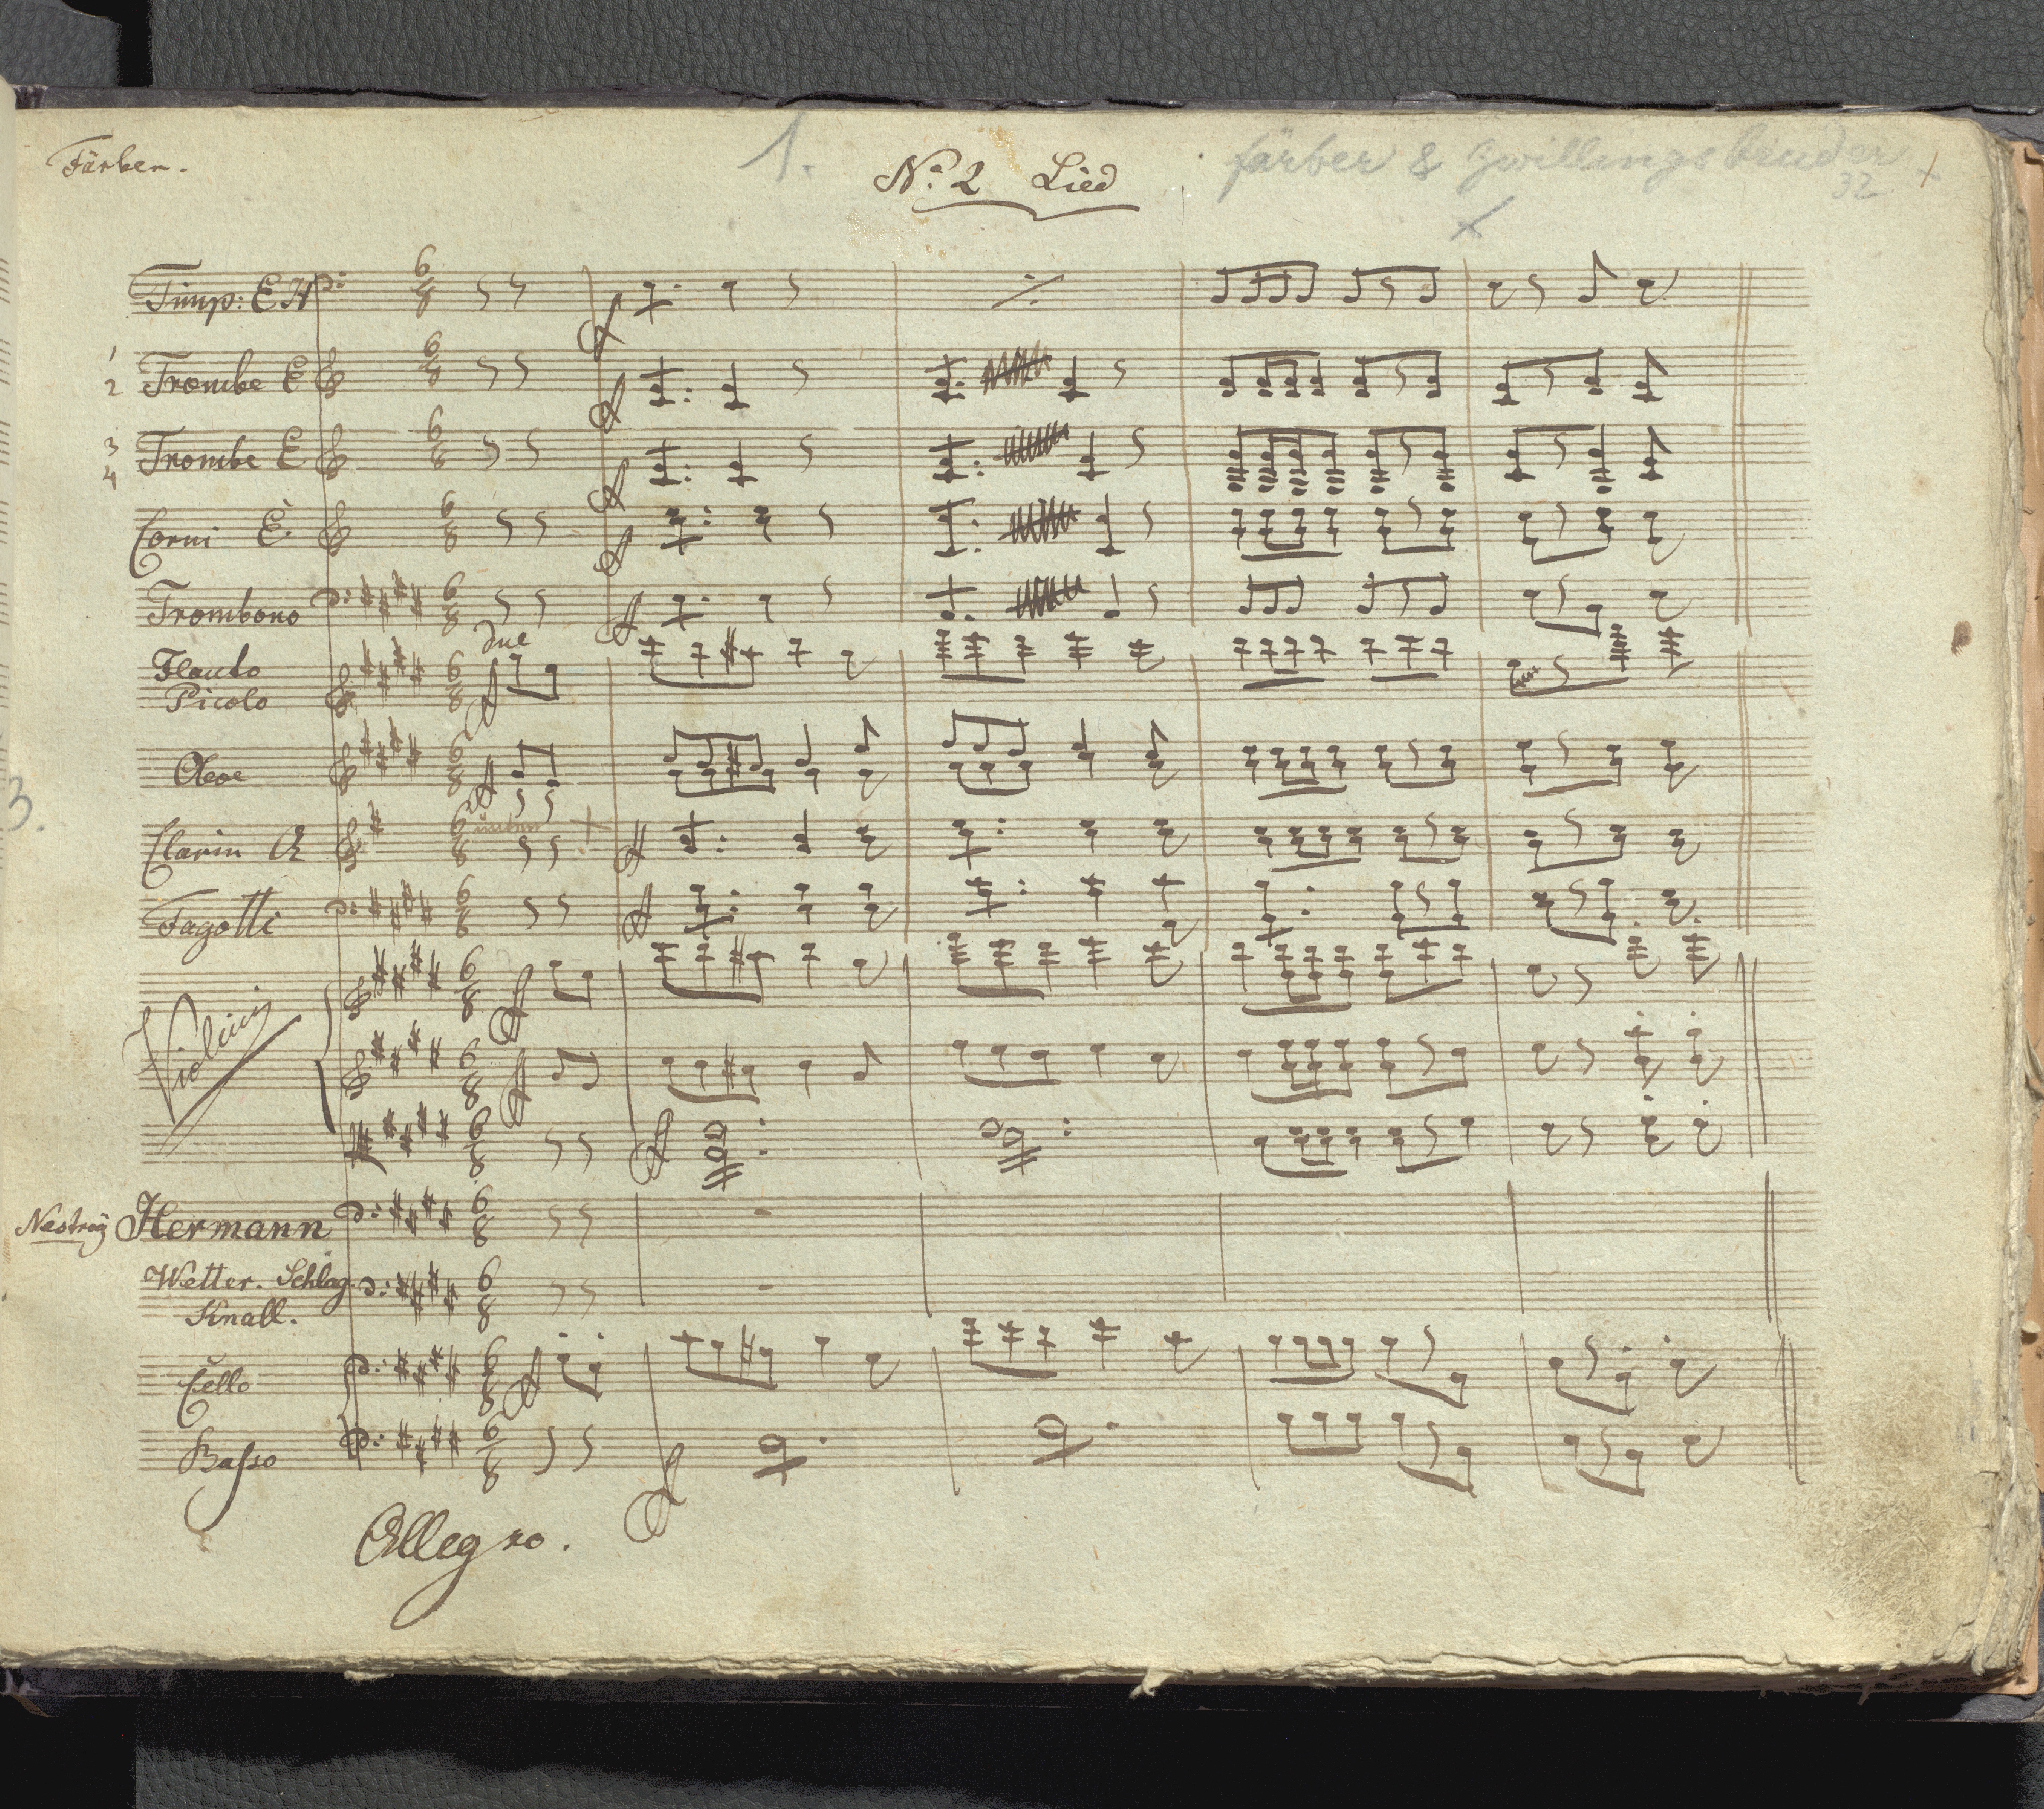 Färber.
1.
No. 2 Lied
färber & Zwillingsbruder
32
Timp: E H
1
2
Trombe E
3
4
Trombe E
Corni E.
Trombono
due
Flauto
Picolo
Oboe
3.
Clarin A
Fagotti
Violini
Nestroy Hermann
Wetter. Schlag.
Knall.
Cello
Basso
Allegro.